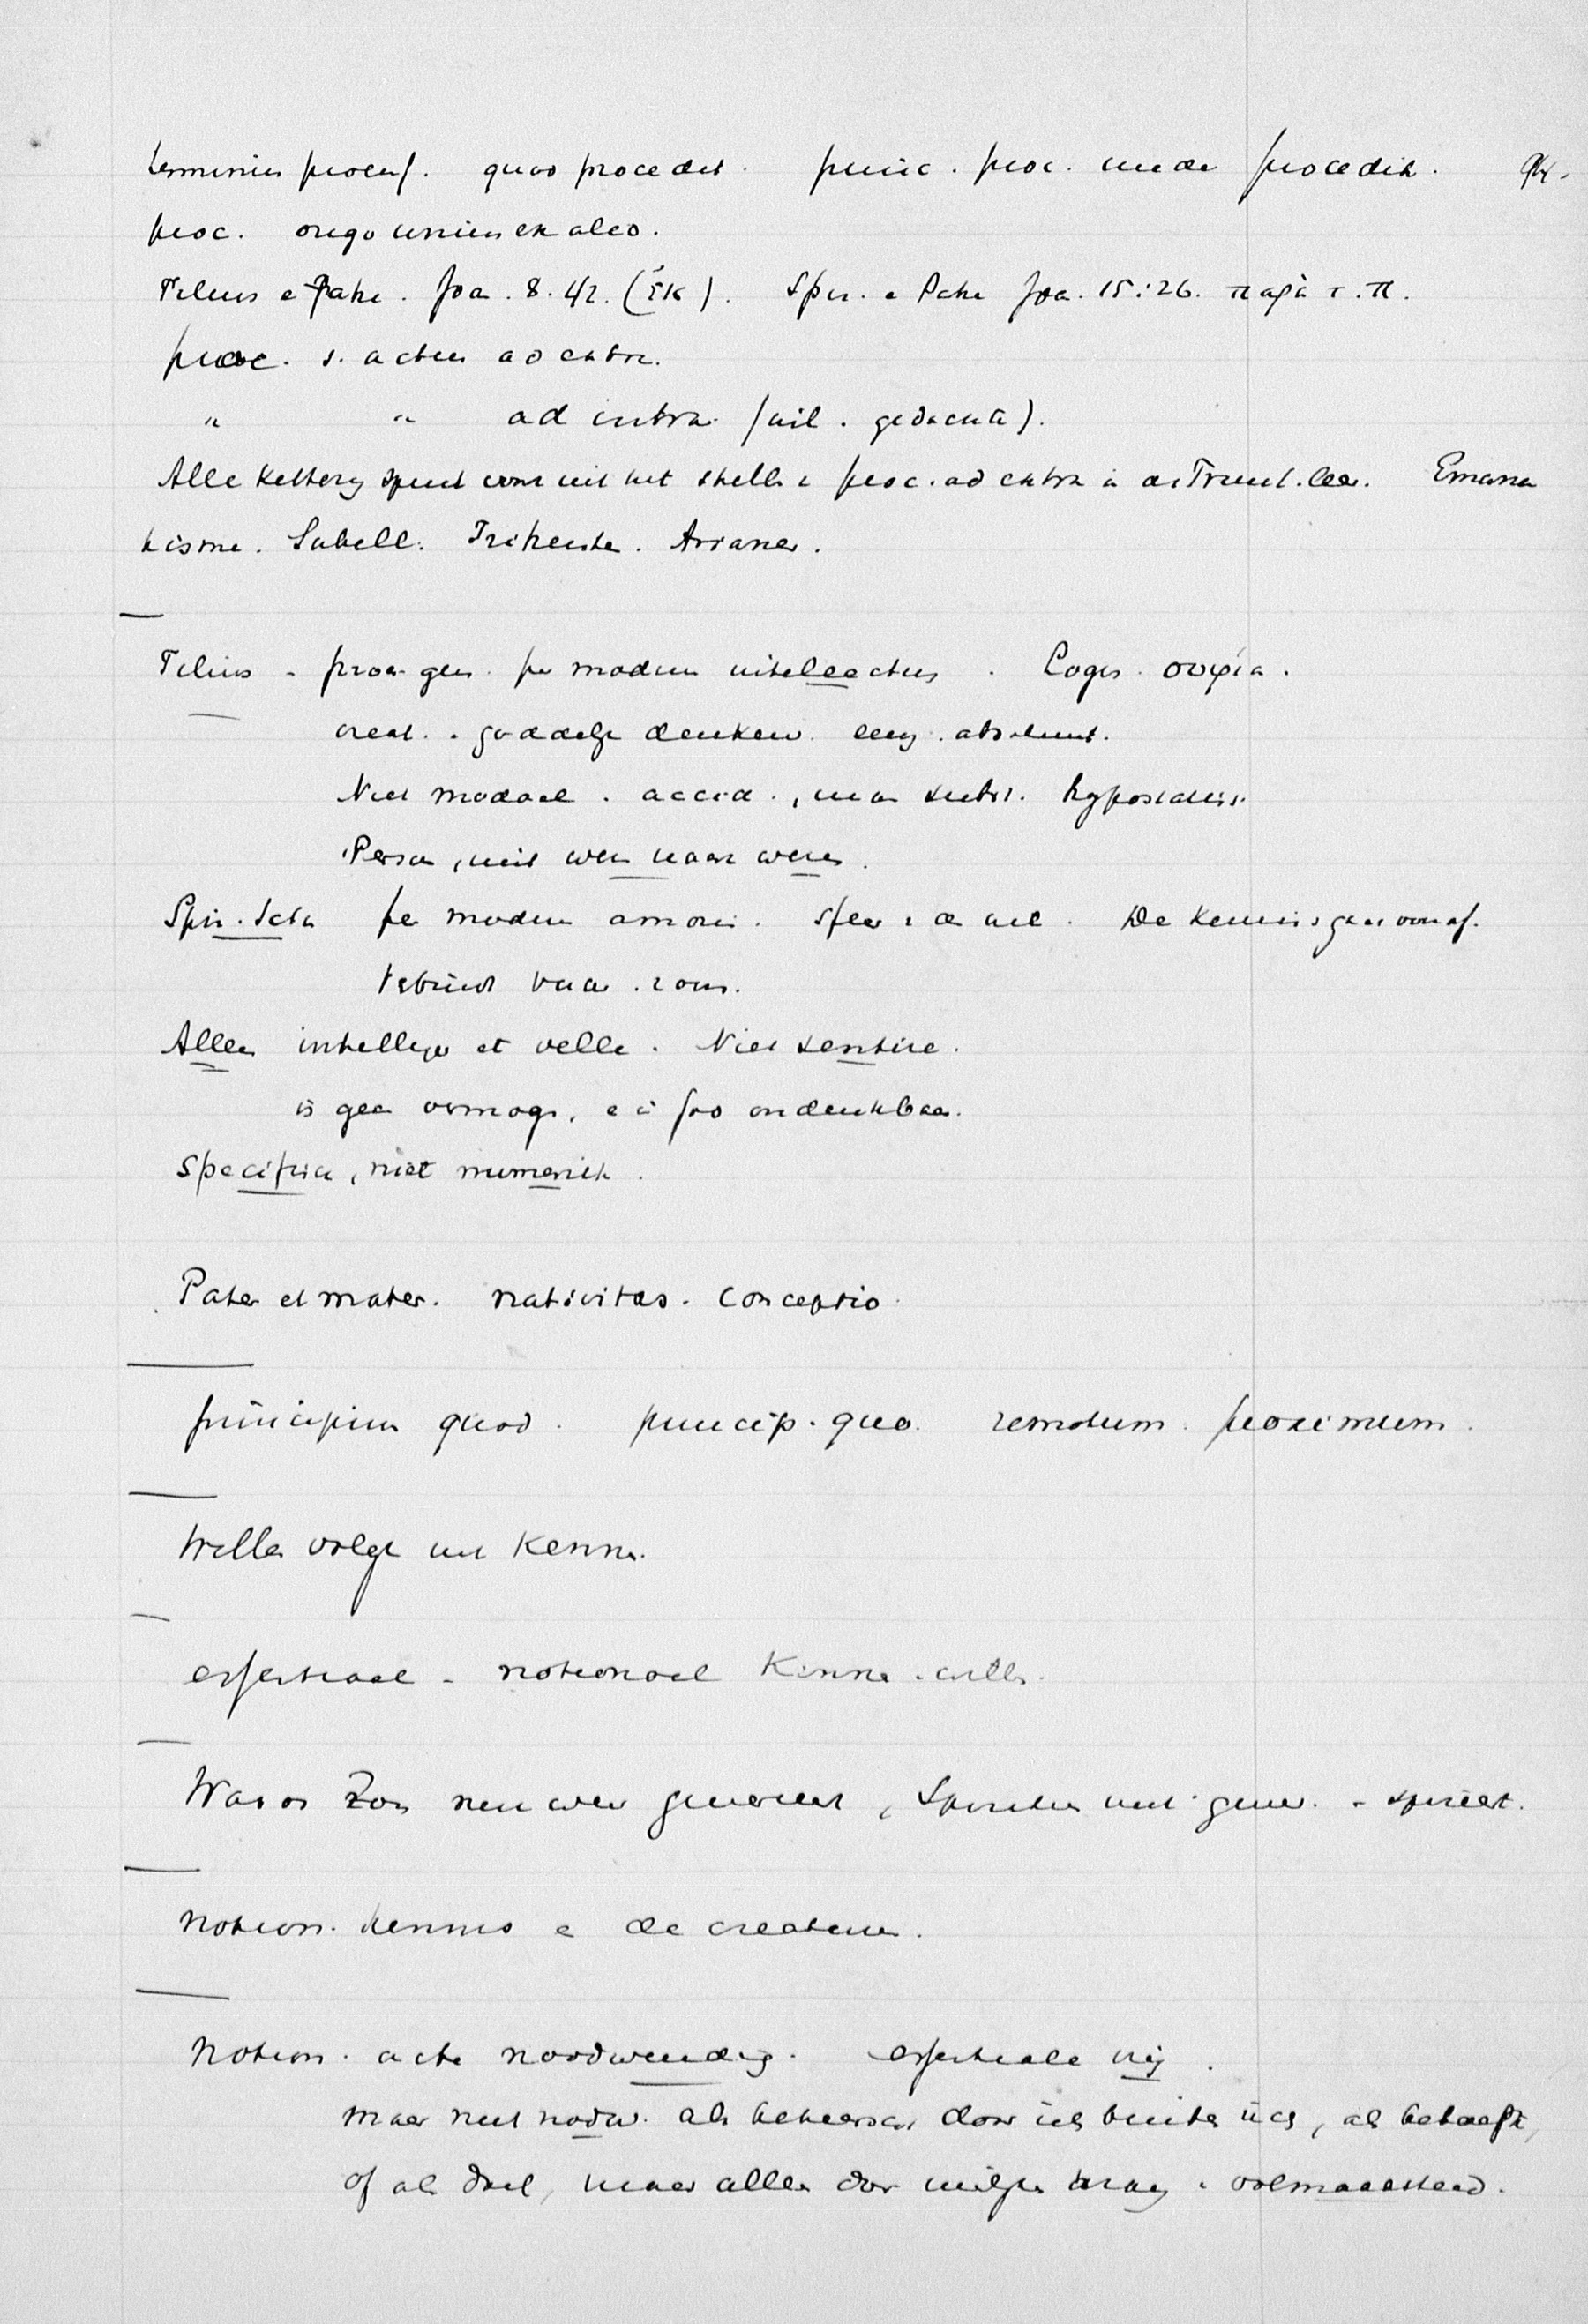 terminus process. quoo procedit. princ. proc. unde procedit.
proc. origo unius ex alio.
Filius e Patre. Joa. 8.42. (ἐκ). Spir. e Patre Joa. 15:26. παρὰ τ. π.
proc. s. actus ad extra.
" " ad intra. (wil. gedachte).
Alle ketterij spruit voort uit het stellen proc. ad extra in de Trinit. leer. Emana
tisme. Sabell. Tritheisten. Arianen.
Filius - proc. gen. per modum intellectus. Logos. σοφία.
creat. goddelijk denken. eeuwig. absoluut.
Niet modaal. accid., maar subst. hypostatisch.
Person, uit wezen naar wezen.
Spir. Sctus per modum amoris. sfeer de wil. De kennis gaat vooraf.
Verbindt Vader. Zoon.
Alleen intelligere et velle. Niet sentire.
is geen vermogen, ondenkbaar.
specifica, niet numeriek.
Pater et mater. nativitas. conceptio.
principium quod. princip. quo. remotum. proximum.
Willen volgt uit kennen.
essentiaal - notionaal kennen. willen.
Waarom Zoon niet weer genereert, Spiritus niet gener. - spireert.
notion. kennis e de creaturen.
Notion. acte noodwendig. essentiale vrij.
maar niet nodw. als beheerscht door iets buiten zich, als behoefte,
of als doel, maar alleen door volmaaktheid.